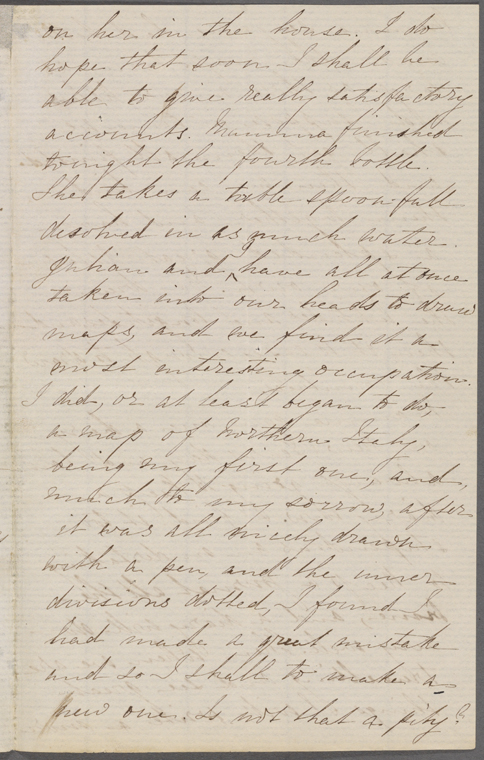 on her in the house. I do
hope that soon I shall be
able to give really satisfactory
accounts. Mamma finished
tonight the fourth bottle.
She takes a table spoon full
desolved in as much water.
Julian and I have all at once
taken into our heads to draw
maps, and we find it a
most interesting occupation.
I did, or at least began to do,
a map of Northern Italy,
being my first one, and,
much to my sorrow, after
it was all nicely drawn
with a pen, and the inner
divisions dotted, I found I
had made a great mistake
and so I shall to make a
new one. Is not that a pity?